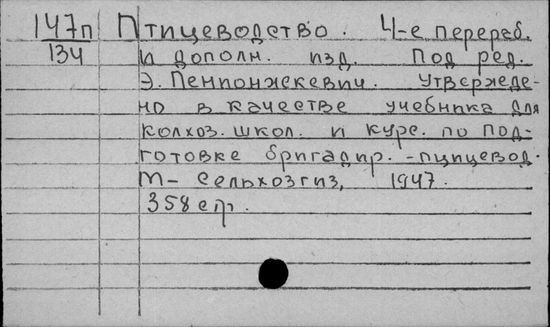 147п Птицеводство. 4-е перераб.
134 и дополн. изд. Под ред.
Э. Пенионжкевич. Утвержде-
но в качестве учебника для
колхоз. школ. и курс. по под-
готовке бригадир.-птицевод.
М- Сельхозгиз, 1947.
358 стр.